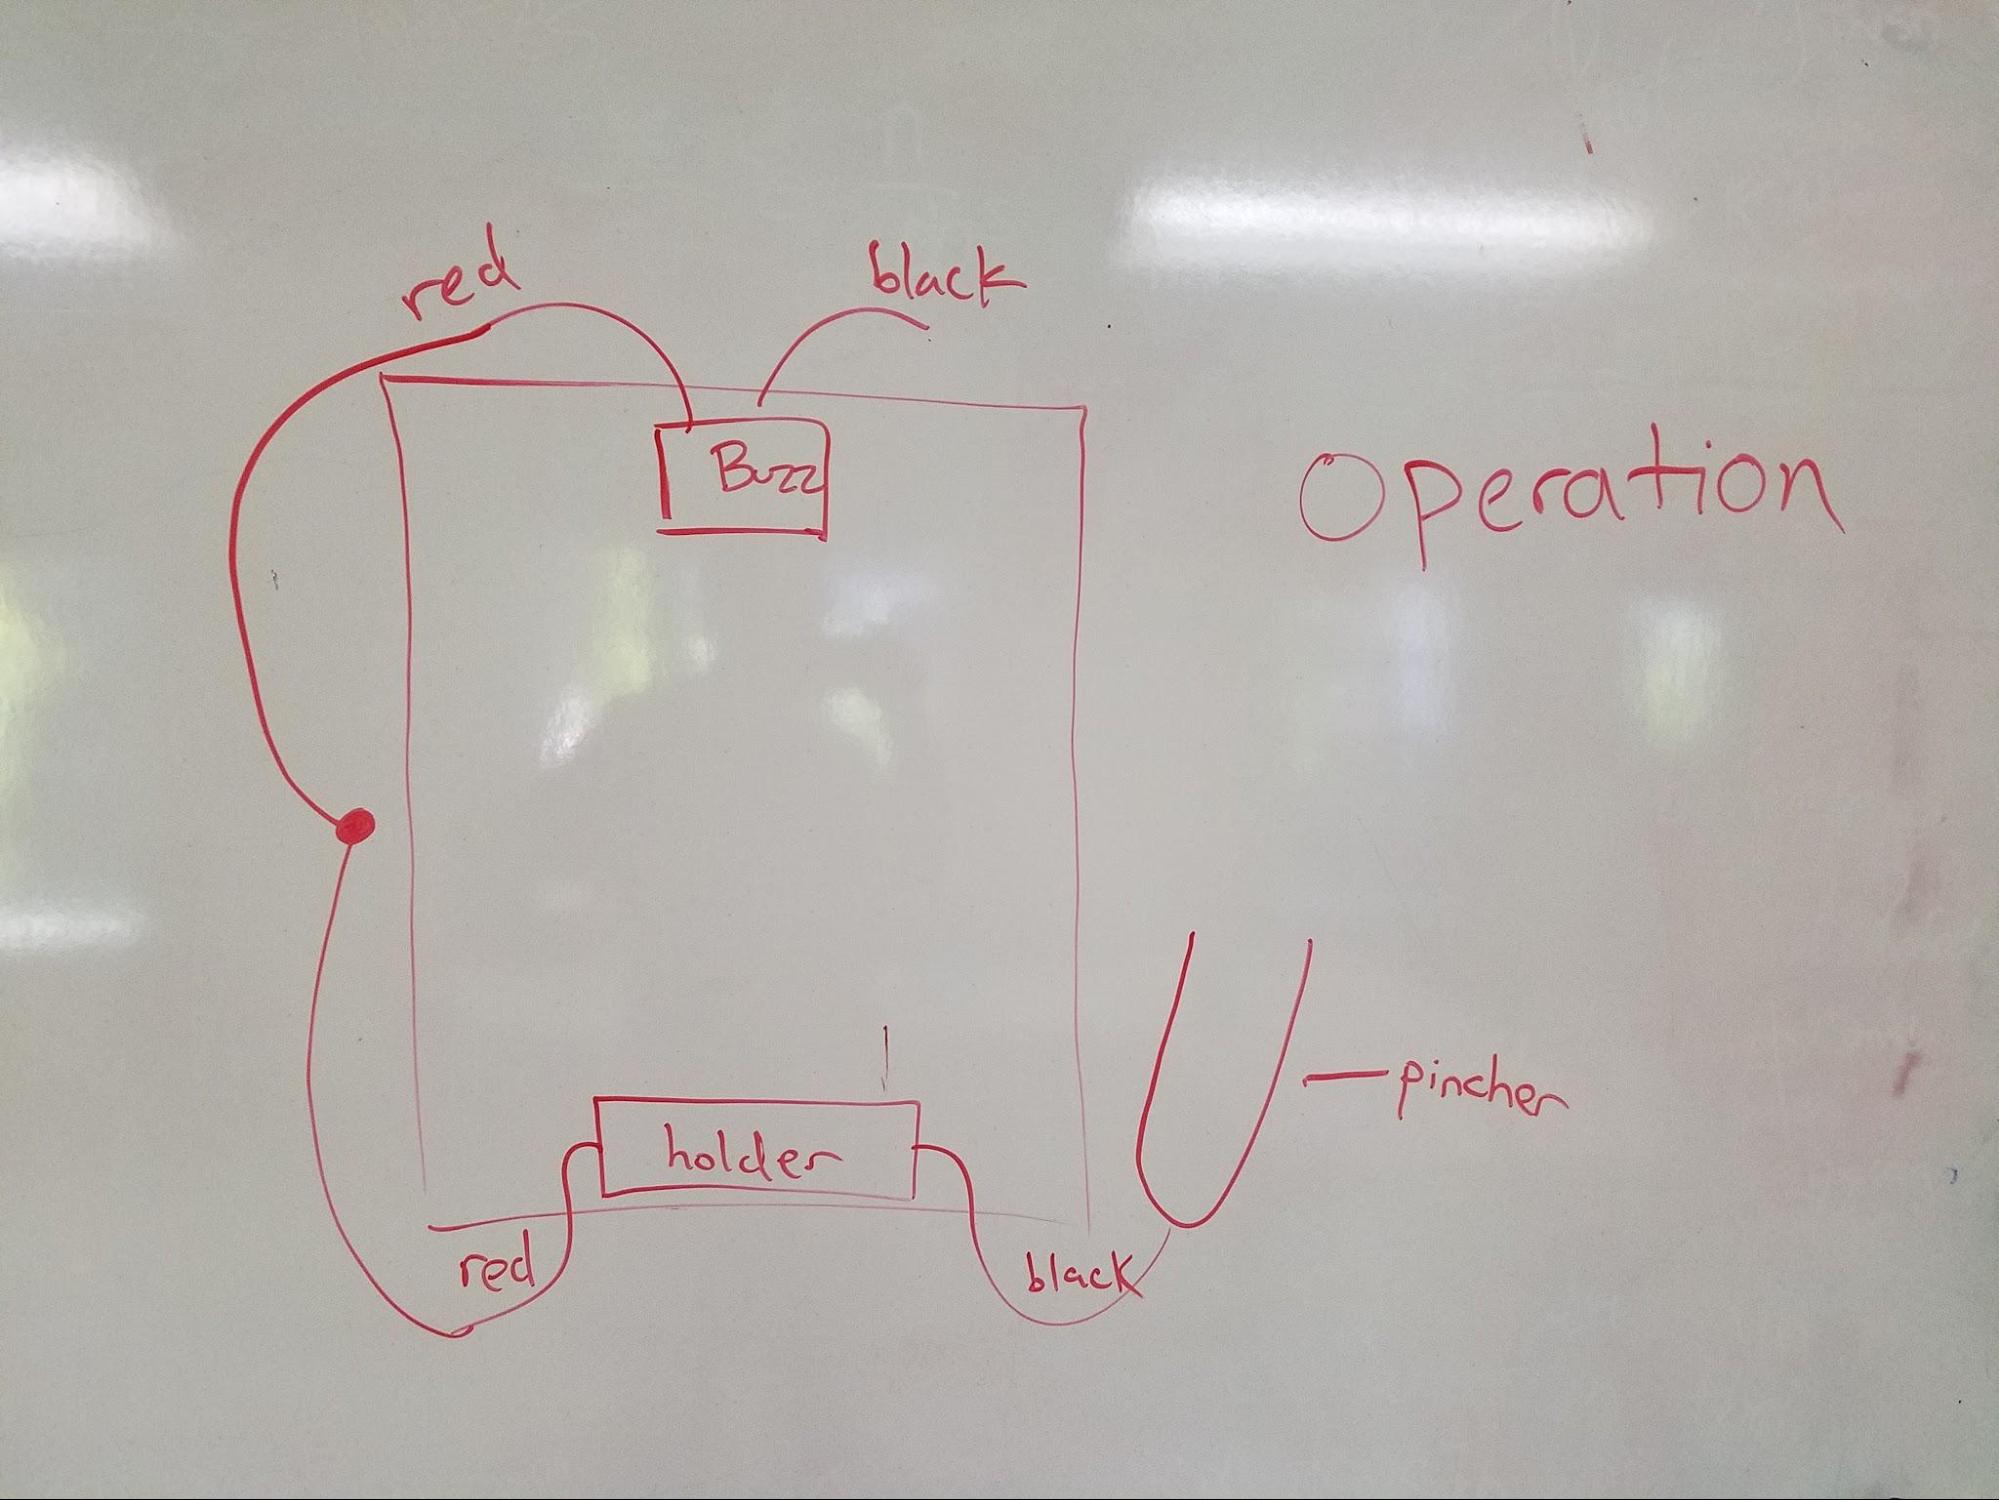 red
black
Buzz
Operation
pincher
holder
red
black